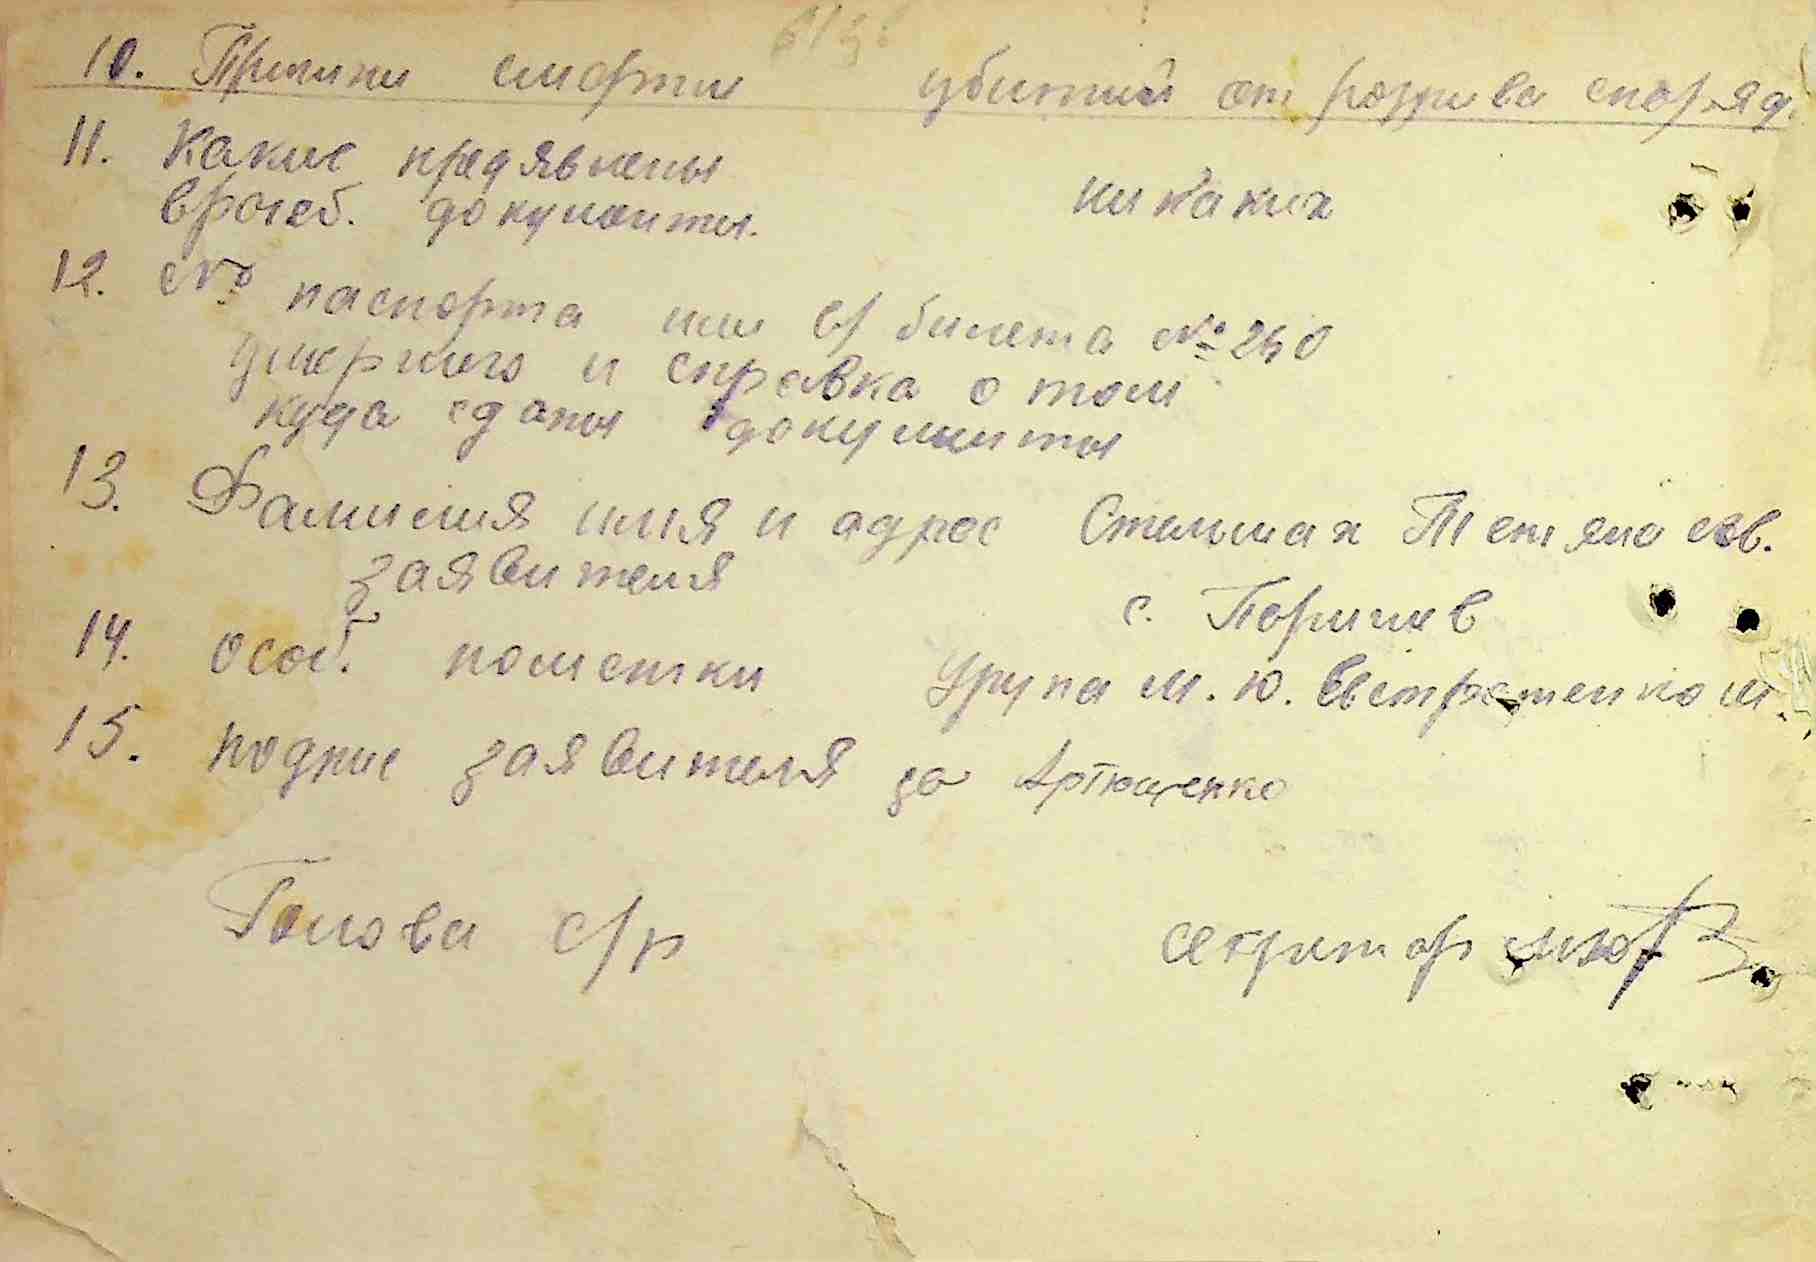 10. Причини смерти убитий от розрива снаряд.
11. Какие предявлены никаких
врачеб. документы.
12. № паспорта или в/билета №250
умершего и справка о том
куда сданы документы
13. Фамилия имя и адрес Стельмах Тетяна
заявителя
с. Поричив
14. особ. пометки група м. ю. Євстратенком.
15. подпис заявителя за Артюценко
Голова с/р секретар